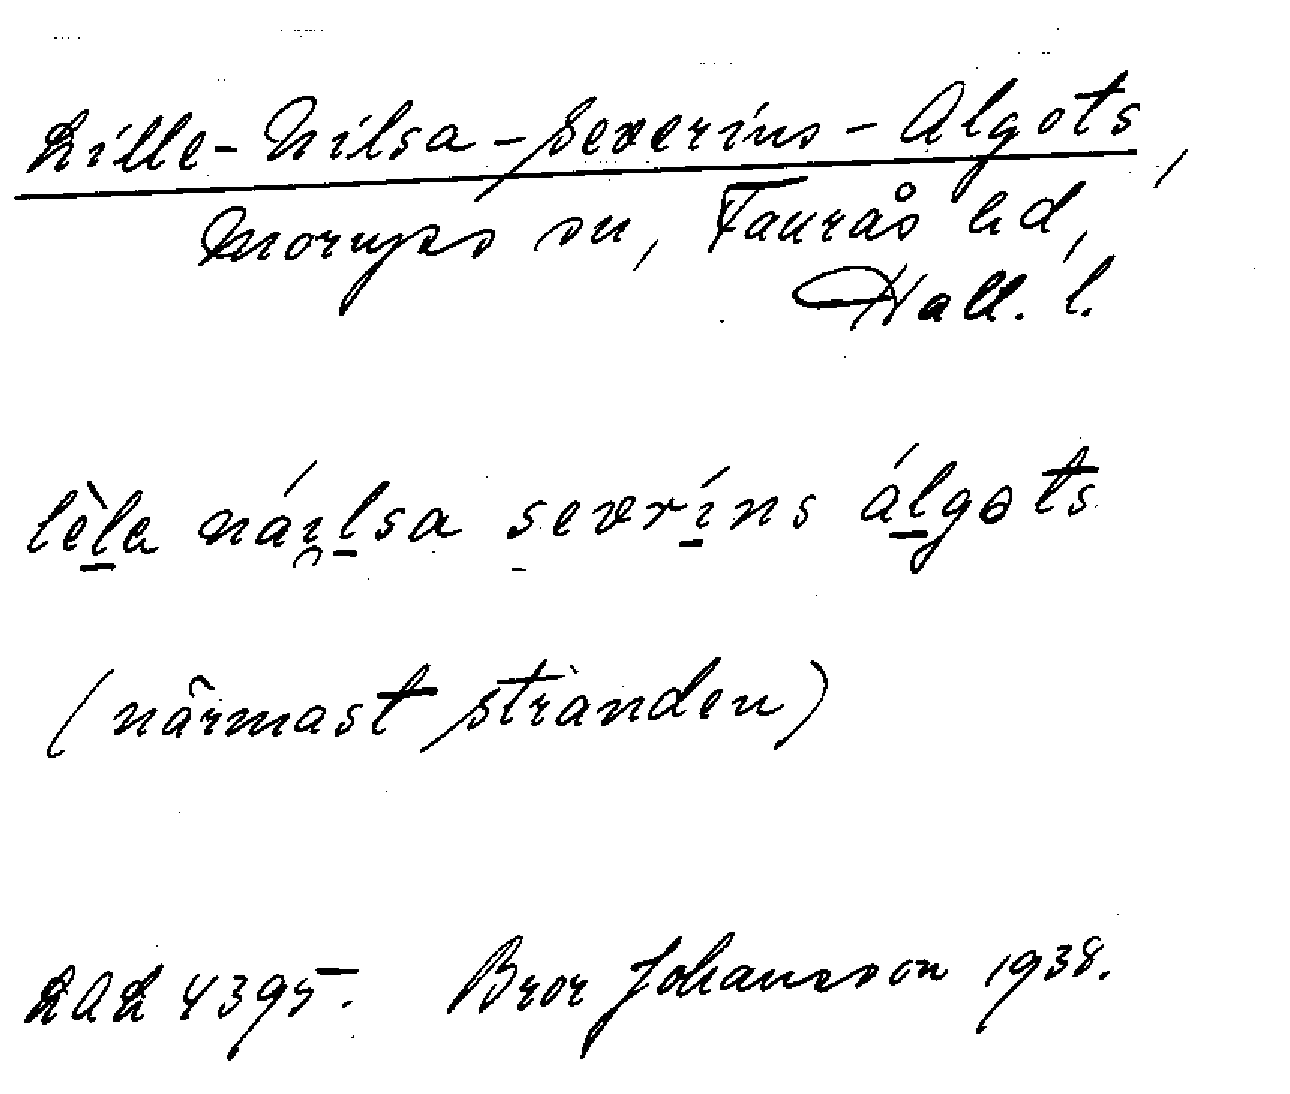 Lille-Nilsa-Severins-Algots,
Morups sn, Faurås hd,
Hall. l.
lèla náı̯lsa severíns álgəts
(närmast stranden)
LAL 4395. Bror Johansson 1938.